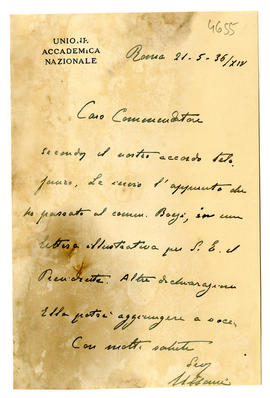 4655
UNIONE
ACCADEMICA
NAZIONALE
Roma 21-5-36/XIV
Caro Commendatore
secondo il nostro accordo tele
fonico, Le invio l'appunto che
ho passato al comm. Boggi, con una
lettera illustrativa per S. E. il
Presidente. Altre dichiarazioni
Ella potrà aggiungere a voce.
Con molti saluti
Suo